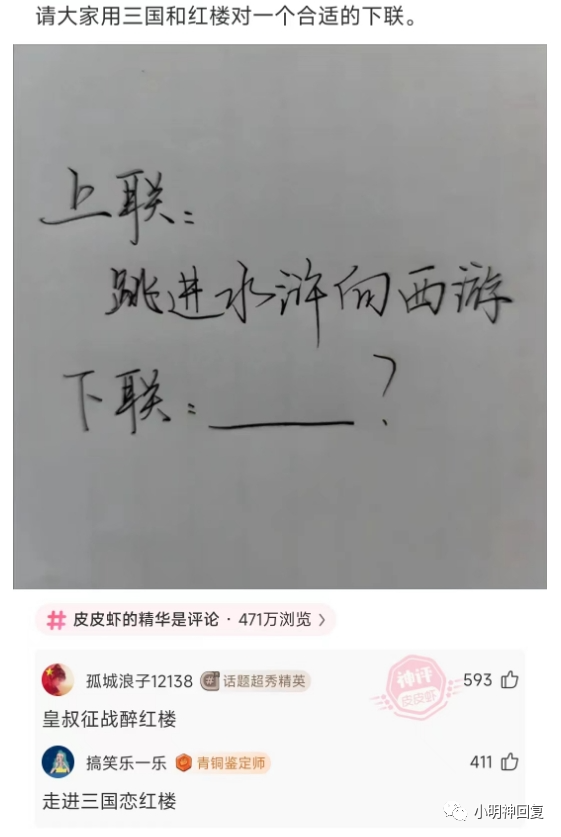 请大家用三国和红楼对一个合适的下联。
上联：
跳进水浒向西游
下联：＿＿＿？
# 皮皮虾的精华是评论 · 471万浏览 >
孤城浪子12138 # 话题超秀精英 神评 皮皮虾 593
皇叔征战醉红楼
搞笑乐一乐 青铜鉴定师 411
走进三国恋红楼
小明神回复